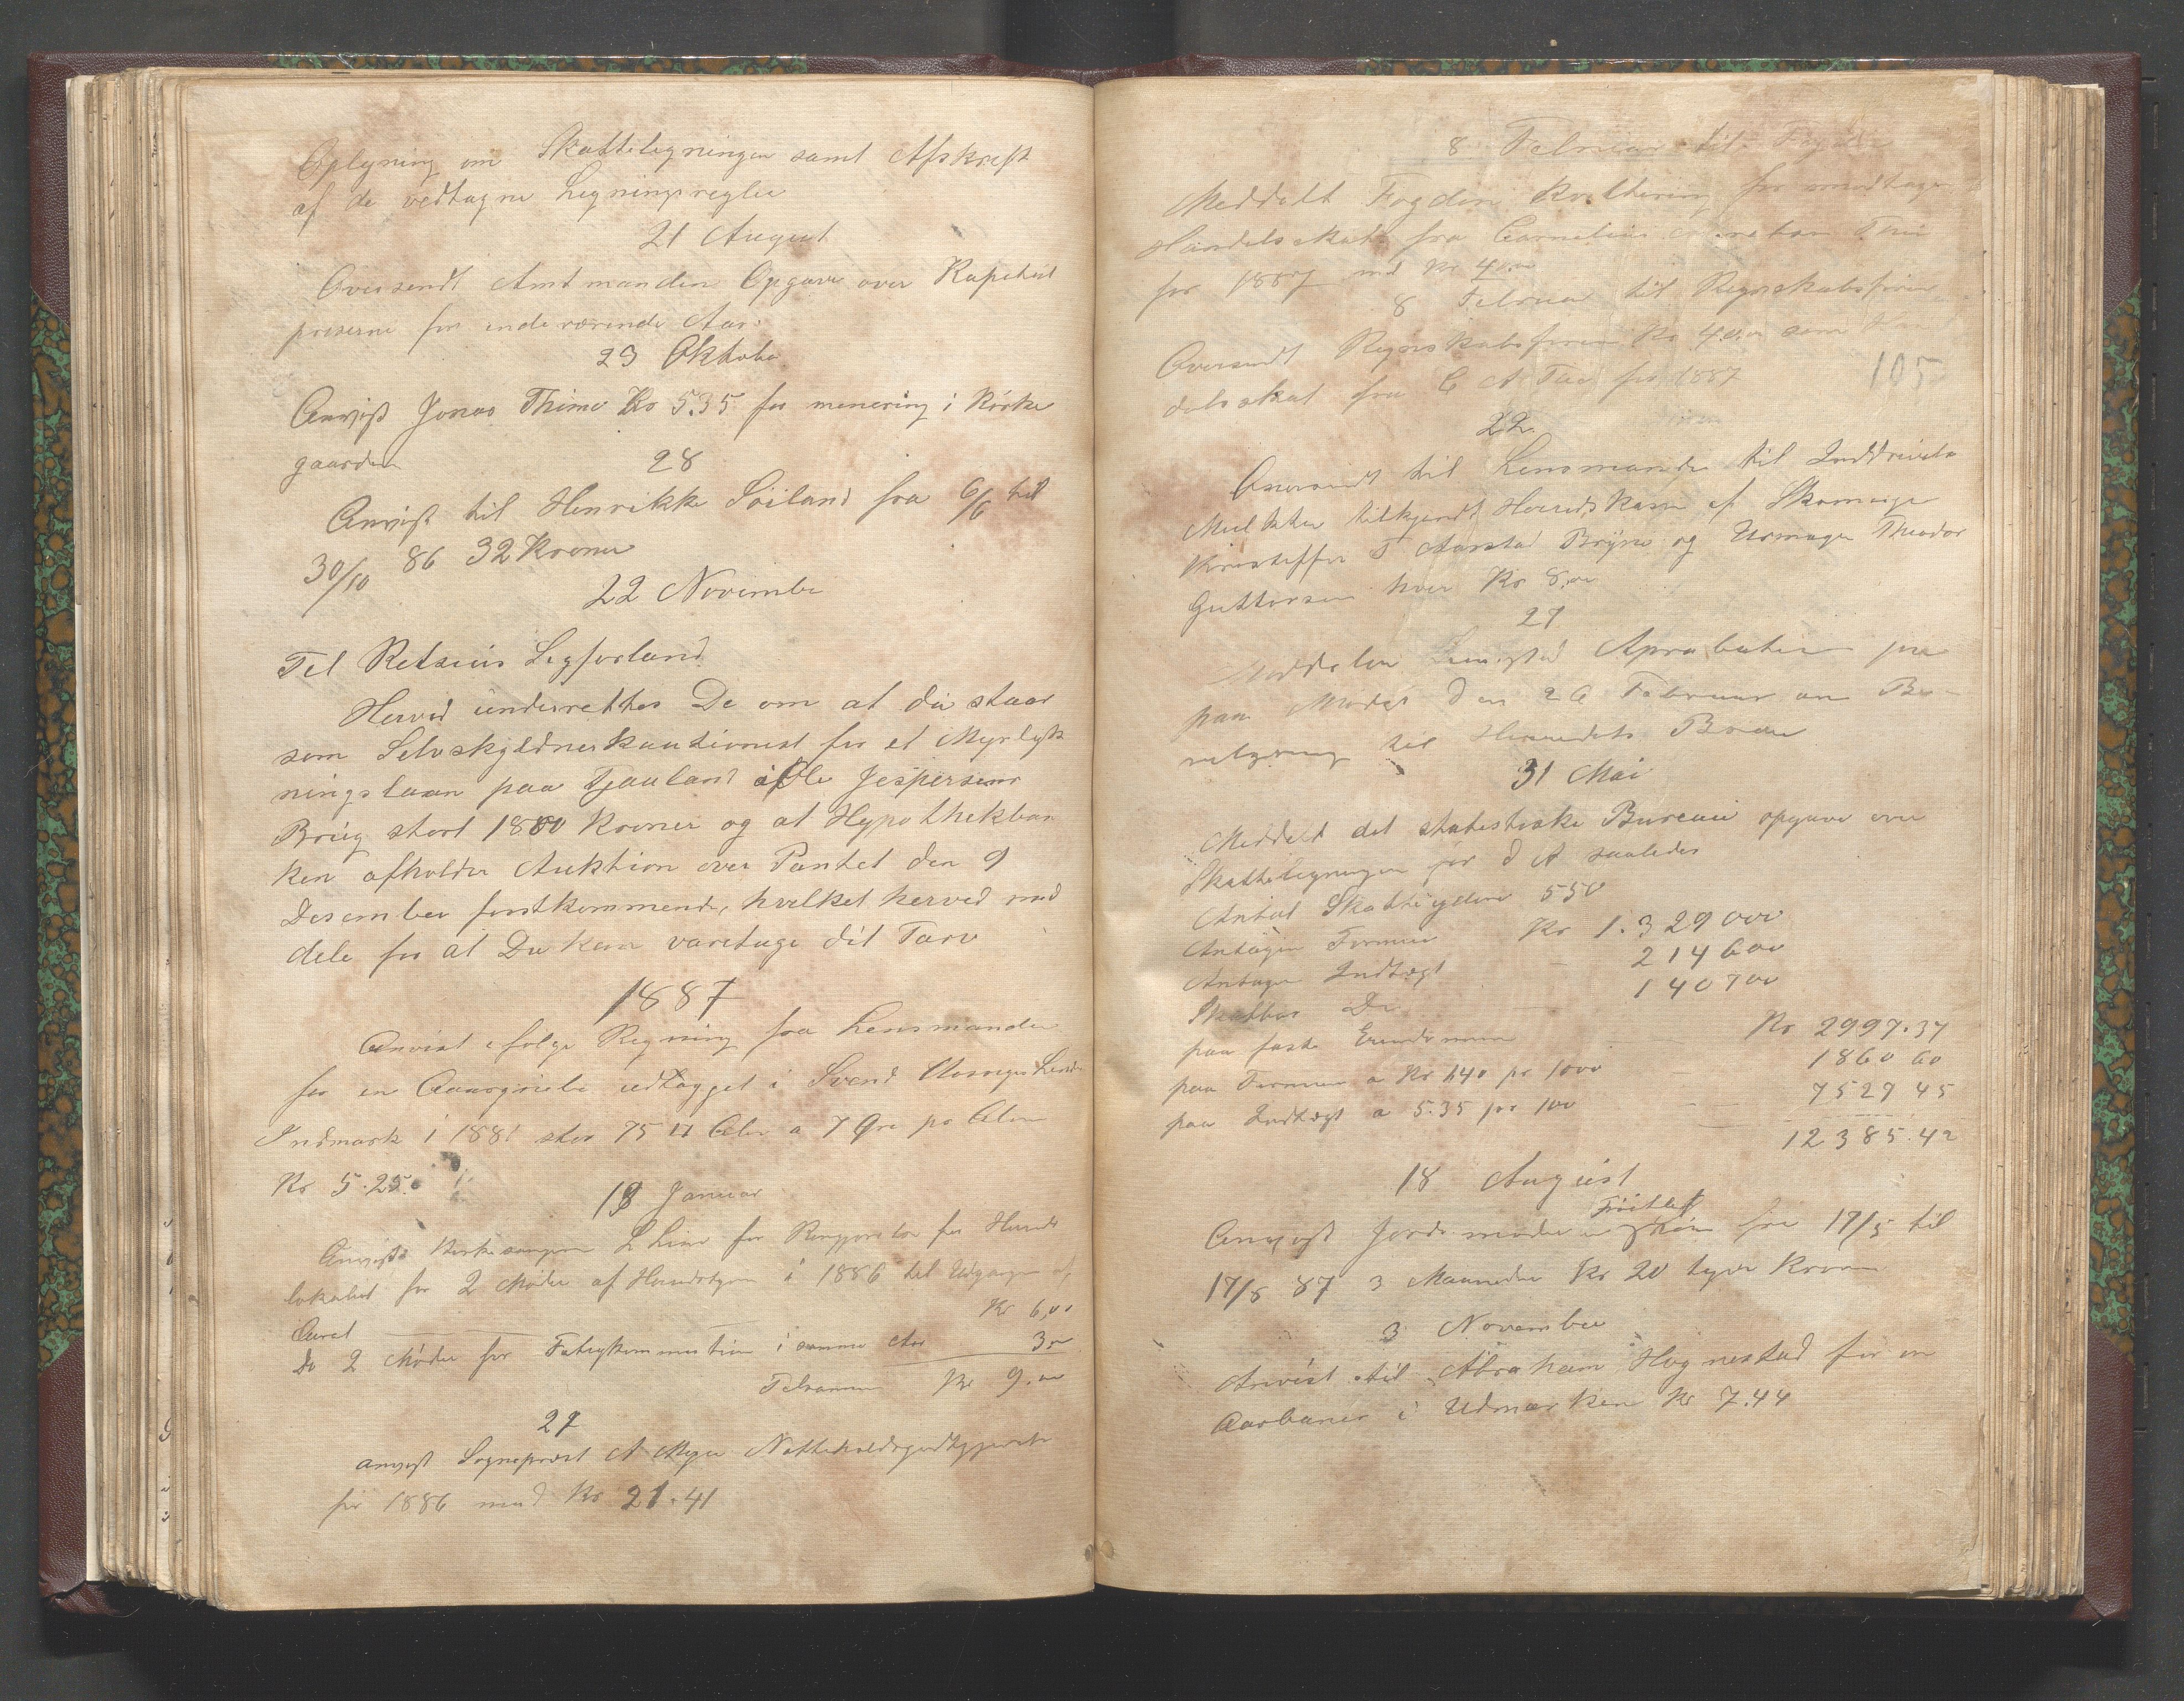 Oplysning om Skatteligningen samt Afskrift
af de vedtagne Ligningsregler
21 August
Oversendt Amtmanden Opgave over Kapitels
priserne for indeværende Aar.
23 Oktober
Anvist Jonas Thime Kr 5.35 for menering i Kirke
gaarden
28
Anvist til Henrikke Soiland fra 6/6 til
30/10 86 32 Kroner
22 November
Til Retsius Ligforland
Herved underrettes De om at du staar
som Selvskyldnerkautionist for et Myrdyrk
ningslaan paa Tjauland i Ole Jespersens
Brug stort 1800 Kroner og at Hypothekban
ken afholder Auktion over Pantet den 9
Desember førstkommende, hvilket herved med
dele for at Du kan varetage dit Tarv
1887
Anvist efølge Regning fra Lensmanden
for en Aavegrøide udlagget i Svend Aasnges
Indmark i 1881 stor 75 Alen a 7 Øre pr Alen
Kr 5.25
19 Januar
Anvist Kirkesangeren L Line for Rengjørelse for Hereds
lokalet for 2 Møder af Heredstyre i 1886 til Udgangen af
Aaret Kr 6,00
Do 2 Møder for Fatigkommistion i samme Aar 3 00
Tilsammen Kr 9.00
27
anvist Sogneprest A Meyer Natteholdsgodtgjørelse
for 1886 med Kr 21.41
8 Februar til Fogden
Meddelt Fogden Kvittering for modtagen
Handelsskat fra Cornelius
for 1887 med Kr 40.00
8 Februar til Regnskabsfører
Oversendt Regnskabsføreren Kr 40.00 som Han
delsskat fra C A Tu for 1887
105
22
Oversendt til Lensmanden til Inddrivelse
Mulkter tilkjendt Heredskassen af Skomager
Kristoffer T Aarstad Bryne og Urmager Theodor
Guttorsen hver Kr 8,00
27
Meddelen Aprobation
paa Mødet den 26 Februar om Be-
velgning til Herredets Broer
31 Mai
Meddelt det statestiske Bureau opgave over
Skatteligningen for d A saaledes
Antal Skatteydere 550
Antagen Formue Kr 1.329000
Antagen Indtægt - 214600
Skatbar Do 140700
paa faste Eiendomme Kr 2997.37
paa Formue a Kr 1.40 pr 1000 - 1860 60
paa Indtægt a 5.35 pr 100 - 7529 45
12385.42
18 August
Anvist Jordemoder Frøitlaf fra 17/5 til
17/8 87 3 Maaneder Kr 20 tyve Kroner
3 November
Anvist til Abraham Hognestad for en
Aarbaner i Udmarken Kr 7.44